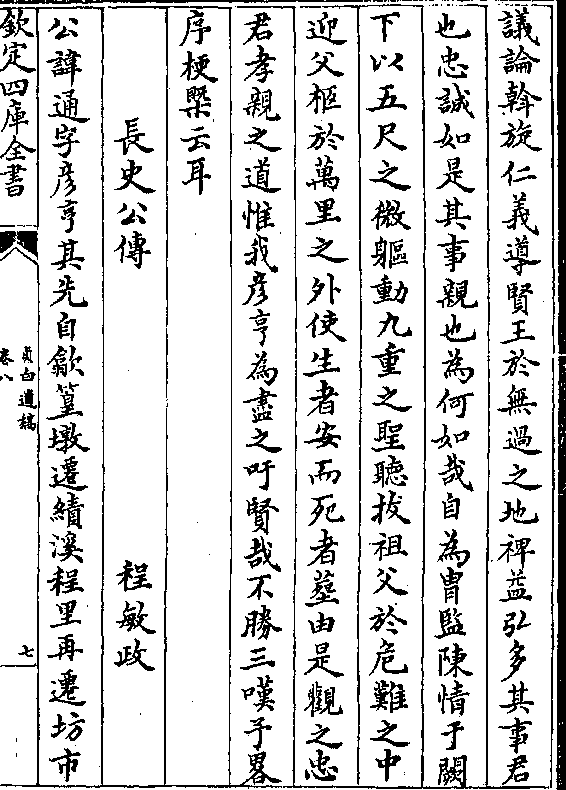 議論斡旋仁義導賢王於無過之地裨益弘多其事君
也忠誠如是其事親也為何如哉自為胄監陳情于闕
下以五尺之微軀動九重之聖聽拔祖父於危難之中
迎父柩於萬里之外使生者安而死者塟由是觀之忠
君孝親之道惟我彦亨為盡之吁賢哉不勝三嘆予畧
序梗槩云耳
長史公傳
程敏政
公諱通字彦亨其先自歙篁墩遷績溪程里再遷坊市
欽定四庫全書
貞白遺稿
卷八
七